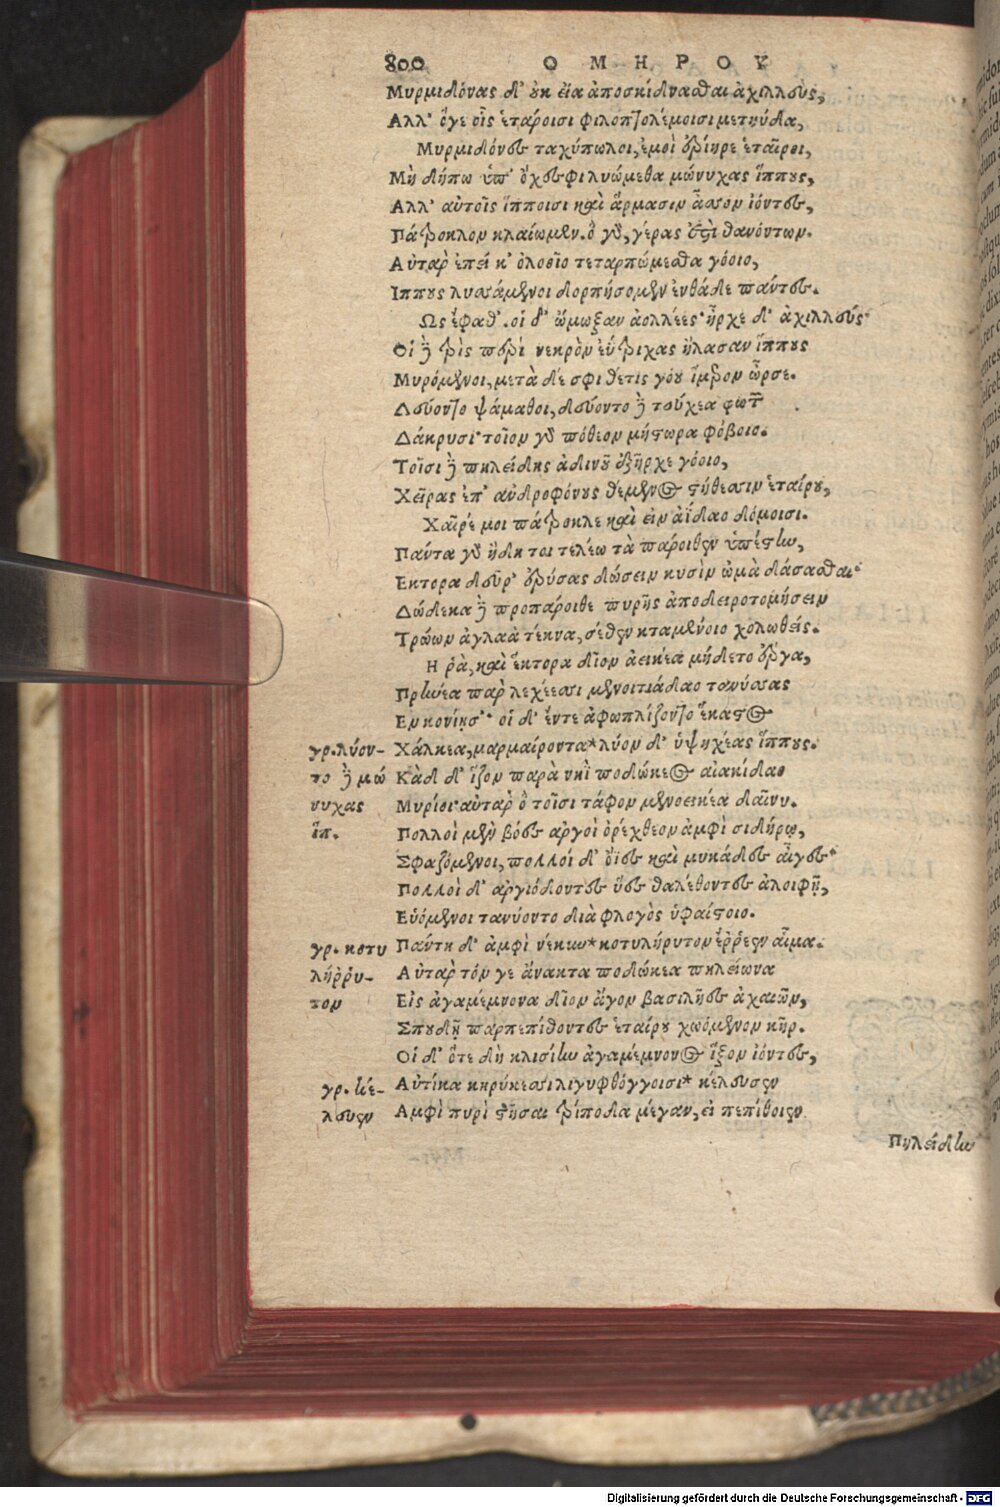 800 ΟΜΗΡΟΥ
Μυρμιδόνας δ' οὐκ εἴα ἀποσκίδνασθαι ἀχιλλεὺς,
Αλλ' ὅγε οἷς ἑτάροισι φιλοπτολέμοισι μετηύδα,
Μυρμιδόνες ταχύπωλοι, ἐμοὶ ἐρίηρες ἑταῖροι,
Μὴ δήπω ὑπ' ὄχεσφι λυώμεθα μώνυχας ἵππους,
Αλλ' αὐτοῖς ἵπποισι καὶ ἅρμασιν ἆσσον ἰόντες,
Πάτροκλον κλαίωμεν. ὃ γὰρ, γέρας ἐστὶ θανόντων.
Αὐτὰρ ἐπεί κ' ὀλοοῖο τεταρπώμεσθα γόοιο,
Ιππους λυσάμενοι δορπήσομεν ἐνθάδε πάντες.
Ως ἔφαθ'. οἱ δ' ᾤμωξαν ἀολλέες· ἦρχε δ' ἀχιλλεύς·
Οἱ δὲ τρὶς περὶ νεκρὸν ἐΰτριχας ἤλασαν ἵππους
Μυρόμενοι, μετὰ δέ σφι θέτις γόου ἵμερον ὦρσε.
Δεύοντο ψάμαθοι, δεύοντο δὲ τεύχεα φωτῶν
Δάκρυσι· τοῖον γὰρ πόθεον μήστωρα φόβοιο.
Τοῖσι δὲ πηλείδης ἀδινοῦ ἐξῆρχε γόοιο,
Χεῖρας ἐπ' ἀνδροφόνους θέμενος στήθεσσιν ἑταίρου,
Χαῖρέ μοι πάτροκλε καὶ εἰν ἀΐδαο δόμοισι.
Πάντα γὰρ ἤδη τοι τελέω τὰ πάροιθεν ὑπέστην,
Εκτορα δεῦρ' ἐρύσας δώσειν κυσὶν ὠμὰ δάσασθαι·
Δώδεκα δὲ προπάροιθε πυρῆς ἀποδειροτομήσειν
Τρώων ἀγλαὰ τέκνα, σέθεν κταμένοιο χολωθείς.
Η ῥὰ, καὶ ἕκτορα δῖον ἀεικέα μήδετο ἔργα,
Πρηνέα παρ λεχέεσσι μενοιτιάδαο τανύσσας
Εν κονίῃσ'· οἱ δ' ἔντε ἀφωπλίζοντο ἕκαστος
γρ. λύον- Χάλκεα, μαρμαίροντα* λύον δ' ὑψηχέας ἵππους.
το δὲ μώ Κὰδ δ' ἷζον παρὰ νηῒ ποδώκεος αἰακίδαο
νυχας Μυρίοι· αὐτὰρ ὃ τοῖσι τάφον μενοεικέα δαίνυ.
ἵπ. Πολλοὶ μὲν βόες ἀργοὶ ὀρέχθεον ἀμφὶ σιδήρῳ,
Σφαζόμενοι, πολλοί δ' ὄϊες καὶ μηκάδες αἶγες·
Πολλοὶ δ' ἀργιόδοντες ὕες θαλέθοντες ἀλοιφῇ,
Εὑόμενοι τανύοντο διὰ φλογὸς ἡφαίστοιο.
γρ. κοτυ Πάντη δ' ἀμφὶ νέκυν* κοτυλήρυτον ἔρρεεν αἷμα.
λήρρυ- Αὐτὰρ τόν γε ἄνακτα ποδώκεα πηλείωνα
τον Εἰς ἀγαμέμνονα δῖον ἄγον βασιλῆες ἀχαιῶν,
Σπουδῇ παρπεπίθοντες ἑταίρου χωόμενον κῆρ.
Οἱ δ' ὅτε δὴ κλισίην ἀγαμέμνονος ἷξον ἰόντες,
γρ. κέ- Αὐτίκα κηρύκεσσι λιγυφθόγγοισι* κέλευσεν
λευεν Αμφὶ πυρὶ στῆσαι τρίποδα μέγαν, εἰ πεπίθοιεν
Πηλείδην
Digitalisierung gefördert durch die Deutsche Forschungsgemeinschaft - DFG